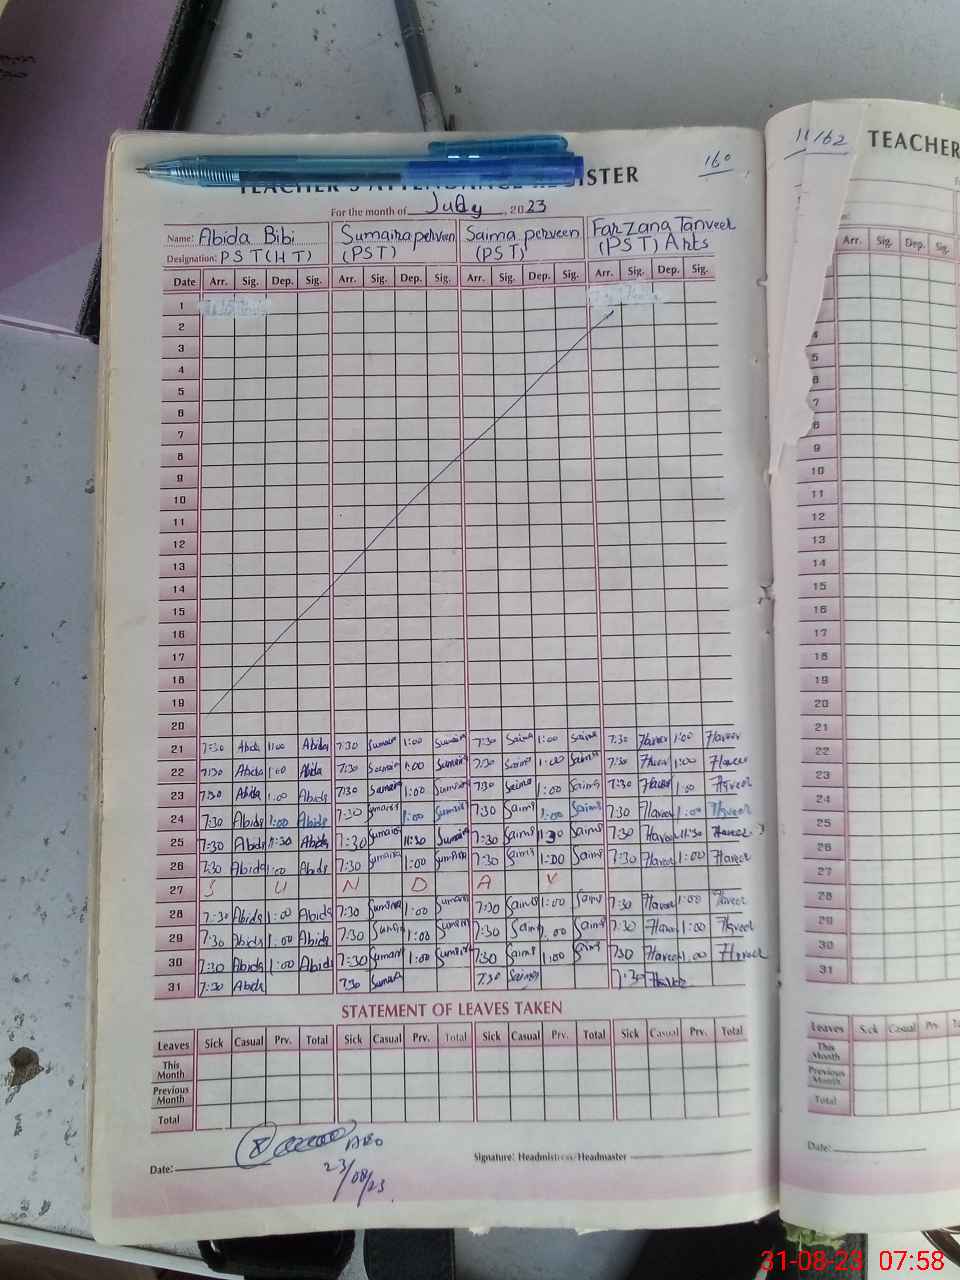 160
TEACHER'S ATTENDANCE REGISTER
For the month of July, 2023
Name: Abida Bibi Sumaira perveen Saima perveen Farzana Tanveer
Designation: PST(HT) (PST) (PST) (PST) Arts
Date Arr. Sig. Dep. Sig. Arr. Sig. Dep. Sig. Arr. Sig. Dep. Sig. Arr. Sig. Dep. Sig.
1
2
3
4
5
6
7
8
9
10
11
12
13
14
15
16
17
18
19
20
21 7:30 Abida 1:00 Abida 7:30 Sumaira 1:00 Sumaira 7:30 Saima 1:00 Saima 7:30 1:00
22 7:30 Abida 1:00 Abida 7:30 Sumaira 1:00 Sumaira 7:30 Saima 1:00 Saima 7:30 1:00
23 7:30 Abida 1:00 Abida 7:30 Sumaira 1:00 Sumaira 7:30 Saima 1:00 Saima 7:30 1:00
24 7:30 Abida 1:00 Abida 7:30 Sumaira 1:00 Sumaira 7:30 Saima 1:00 Saima 7:30 1:00
25 7:30 Abida 11:30 Abida 7:30 Sumaira 11:30 Sumaira 7:30 Saima 11:30 Saima 7:30 11:30
26 7:30 Abida 1:00 Abida 7:30 Sumaira 1:00 Sumaira 7:30 Saima 1:00 Saima 7:30 1:00
27 S U N D A Y
28 7:30 Abida 1:00 Abida 7:30 Sumaira 1:00 Sumaira 7:30 Saima 1:00 Saima 7:30 1:00
29 7:30 Abida 1:00 Abida 7:30 Sumaira 1:00 Sumaira 7:30 Saima 1:00 Saima 7:30 1:00
30 7:30 Abida 1:00 Abida 7:30 Sumaira 1:00 Sumaira 7:30 Saima 1:00 Saima 7:30 1:00
31 7:30 Abida 7:30 Sumaira 7:30 Saima 7:30
STATEMENT OF LEAVES TAKEN
Leaves Sick Casual Prv. Total Sick Casual Prv. Total Sick Casual Prv. Total Sick Casual Prv. Total
This Month
Previous Month
Total
Date: Signature: Headmistress/Headmaster
23/08/23
162 TEACHER
Arr. Sig. Dep. Sig.
4
5
6
7
8
9
10
11
12
13
14
15
16
17
18
19
20
21
22
23
24
25
26
27
28
29
30
31
Leaves Sick Casual Prv.
This Month
Previous Month
Total
Date:
31-08-23 07:58